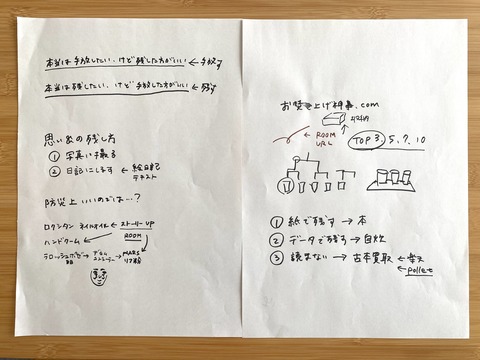 本当は手放したい、けど残した方がいい ← 手放す
本当は残したい、けど手放した方がいい ← 残す
思い出の残し方
① 写真に撮る
② 日記にします ← 絵日記
テキスト
防災上いいのでは…?
ロクシタン ネイルオイル ← ストーリー UP
ハンドクリーム
ROOM
ラロッシュポゼ → → MARS
お焚き上げ神具.com
ROOM
URL
TOP 3. 5. 7. 10
① 紙で残す → 本
② データで残す → 自炊
③ 読まない → 古本買取 ←
← pollet